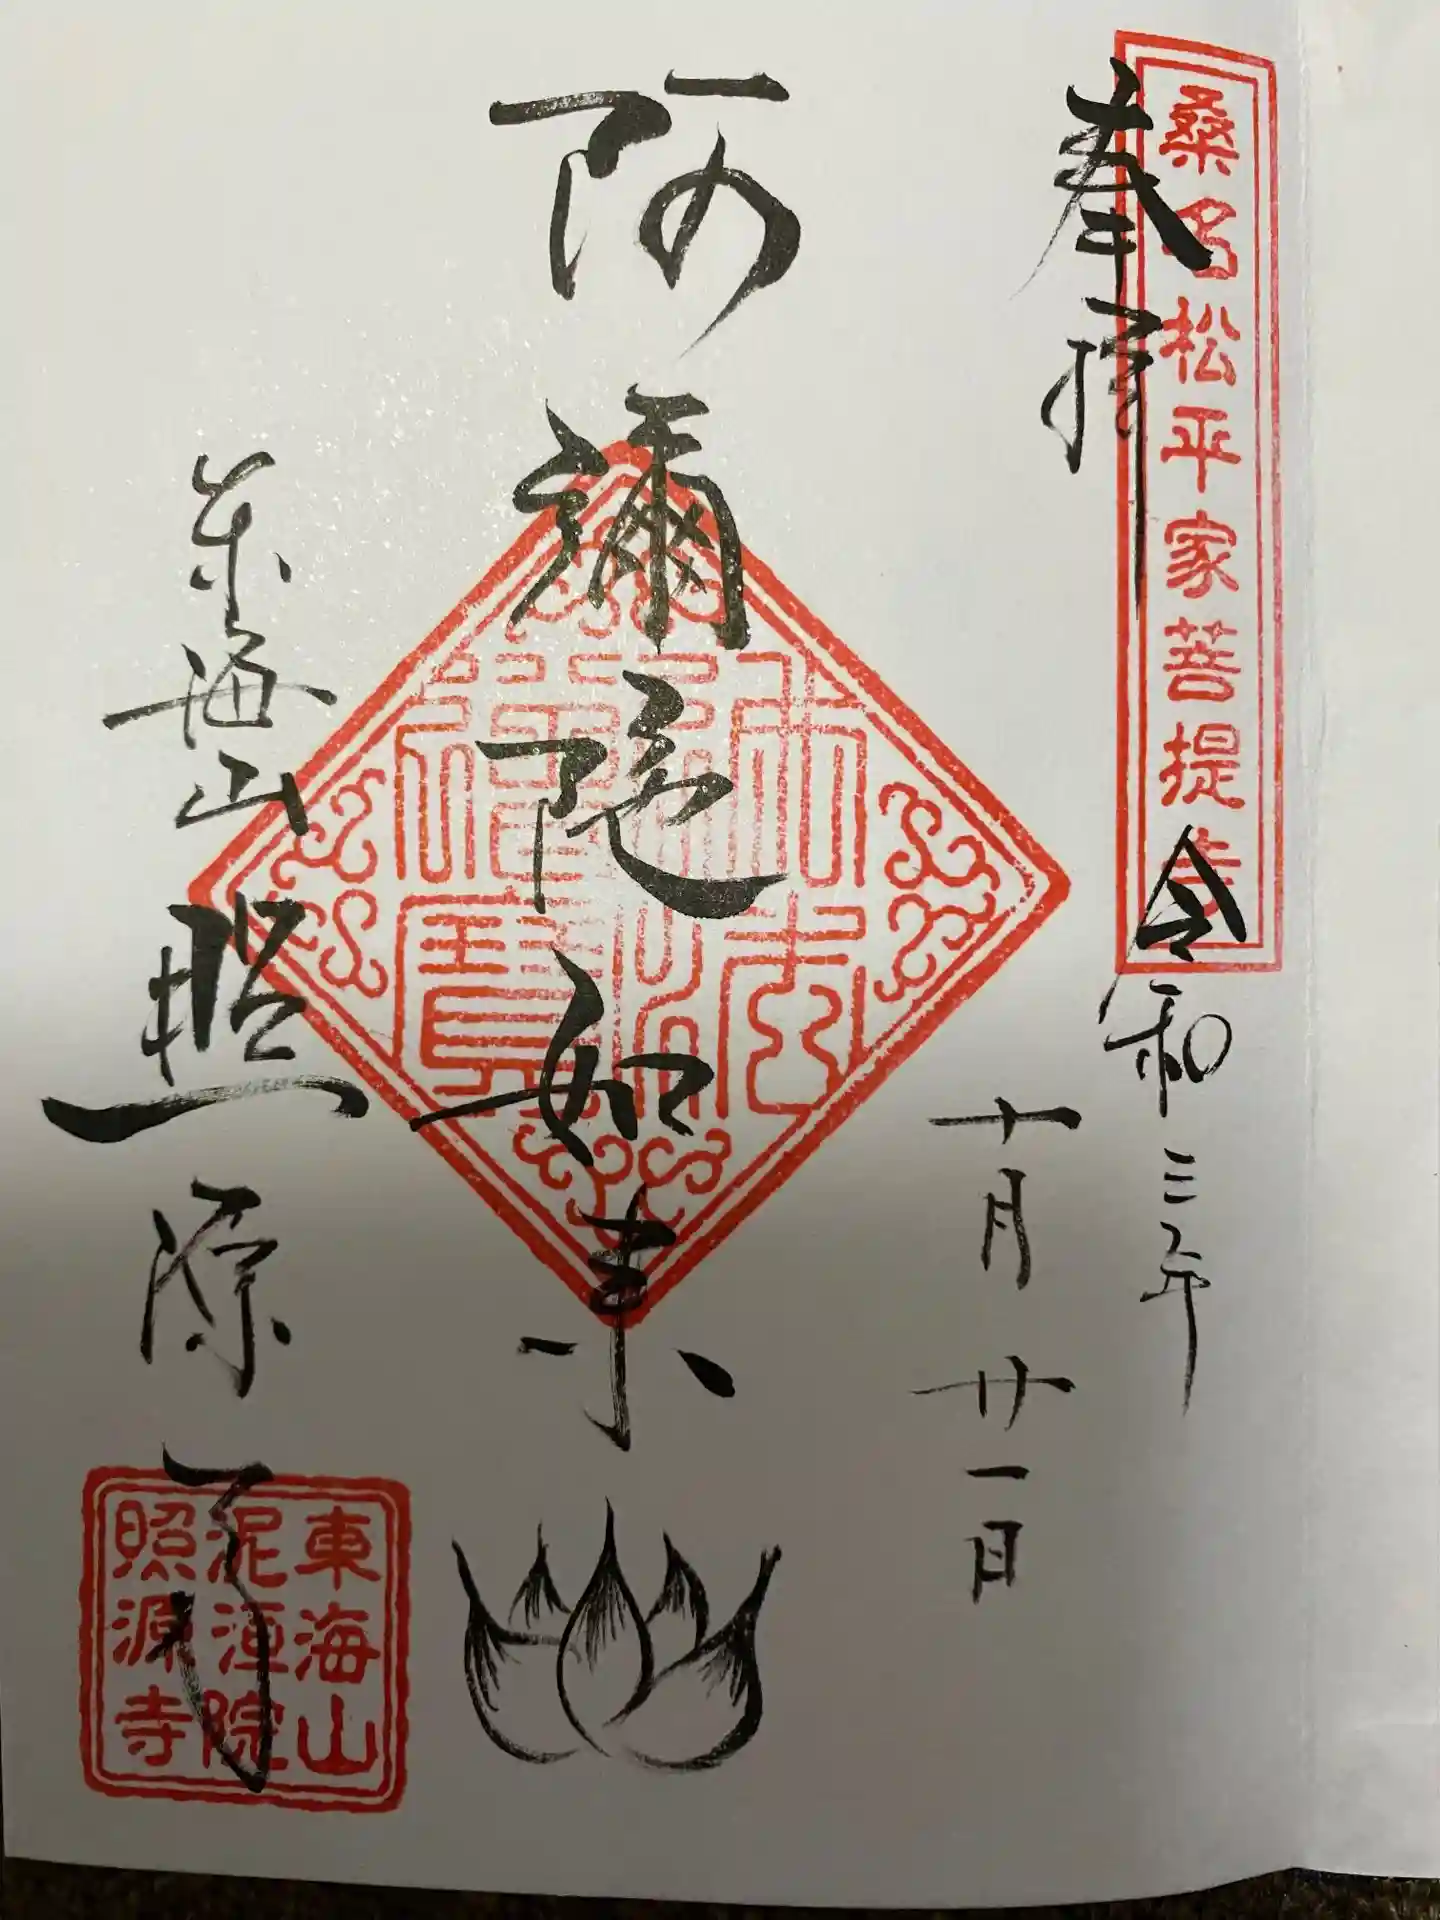 奉拝
桑名松平家菩提寺
令和三年
十月廿一日
阿彌陀如来
佛法僧寶
東海山
照源寺
東海山
泥洹院
照源寺